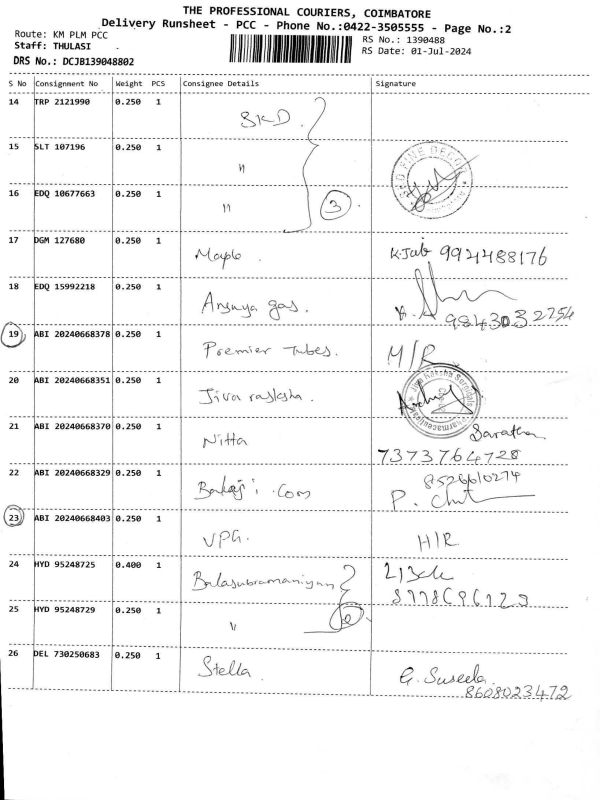 THE PROFESSIONAL COURIERS, COIMBATORE
Delivery Runsheet - PCC - Phone No.:0422-3505555 - Page No.:2
Route: KM PLM PCC
RS No.: 1390488
Staff: THULASI
RS Date: 01-Jul-2024
DRS No.: DCJB139048802
S No Consignment No Weight PCS Consignee Details Signature
14 TRP 2121990 0.250 1 SKD.
15 SLT 107196 0.250 1 "
16 EDQ 10677663 0.250 1 " 3
17 DGM 127680 0.250 1 Maple. 9944488176
18 EDQ 15992218 0.250 1 Ansuya gas. 9843032754
19 ABI 20240668378 0.250 1 Premier Tubes. M/R
20 ABI 20240668351 0.250 1 Jiva raksha.
21 ABI 20240668370 0.250 1 Nitta
7373764728
22 ABI 20240668329 0.250 1 Balaji . Com 8526610274
23 ABI 20240668403 0.250 1 VPG. H/R
24 HYD 95248725 0.400 1 Balasubramaniyan
25 HYD 95248729 0.250 1 "
26 DEL 730250683 0.250 1 Stella. G. Suseela.
8608023472